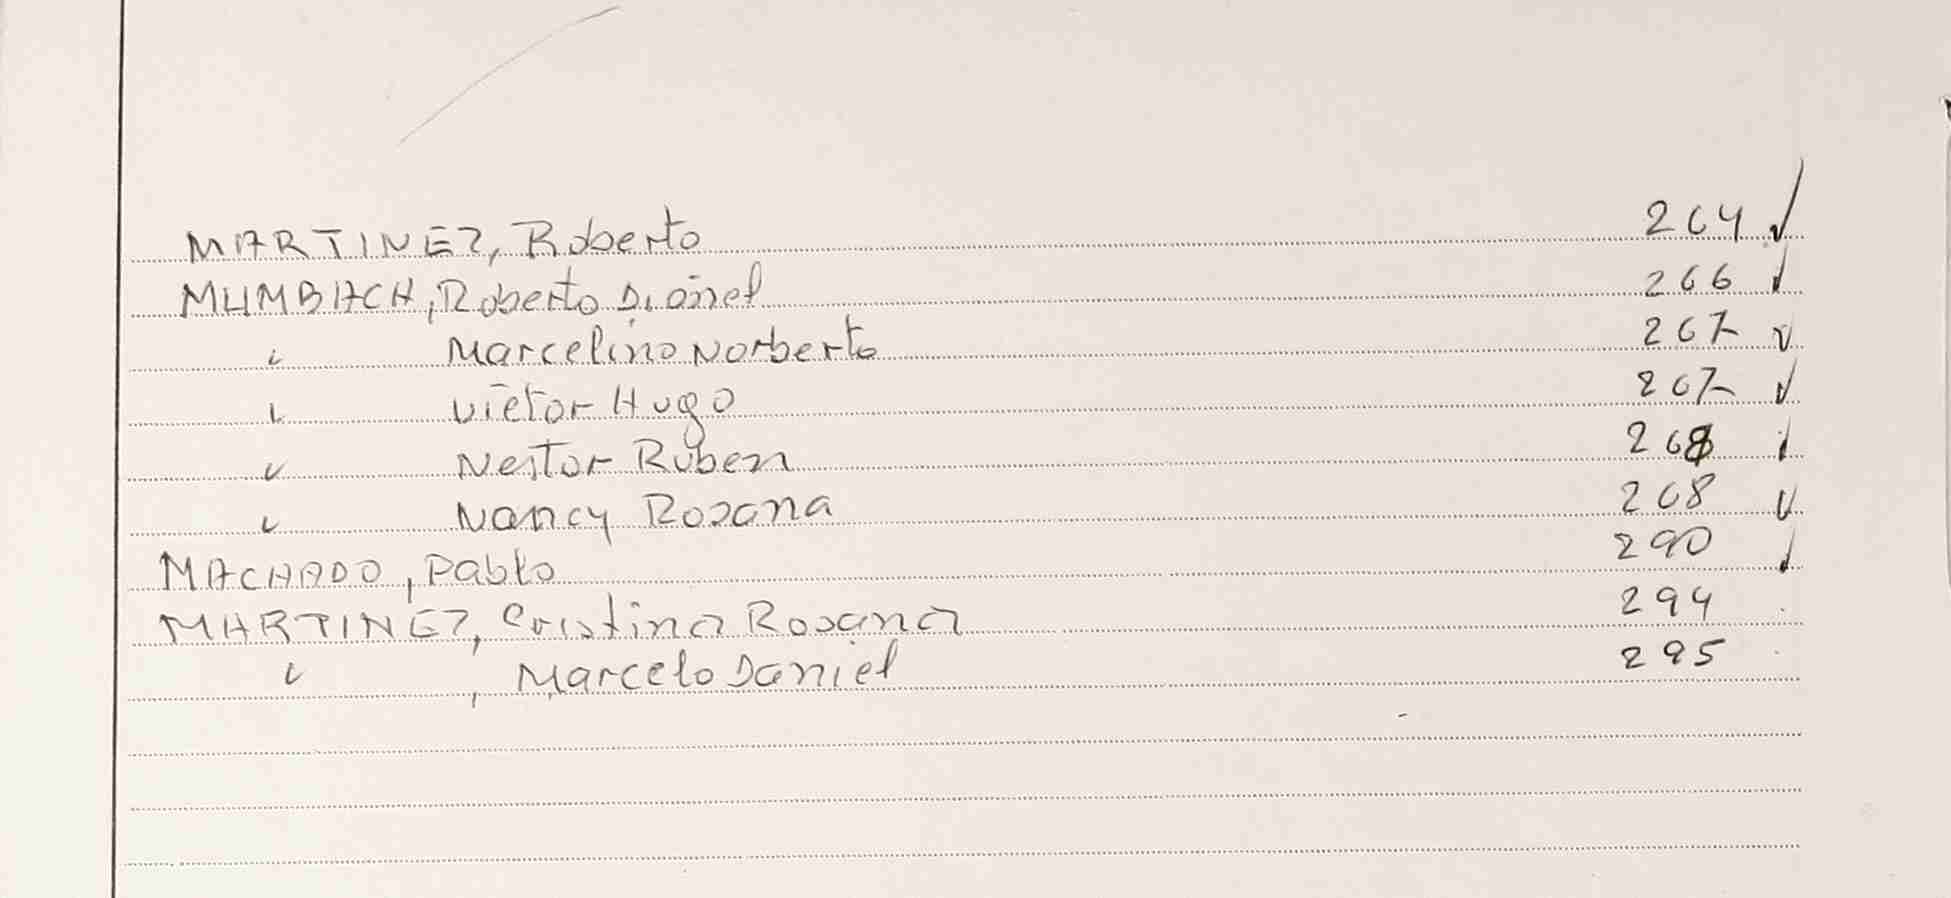 MARTINEZ, Roberto 264 ✓
MUMBACH, Roberto Dionel 266 ✓
" Marcelino Norberto 267 ✓
" Victor Hugo 267 ✓
" Nestor Ruben 268 ✓
" Nancy Rosana 268 ✓
MACHADO, Pablo 290 ✓
MARTINEZ, Cristina Rosana 294
" , Marcelo Daniel 295